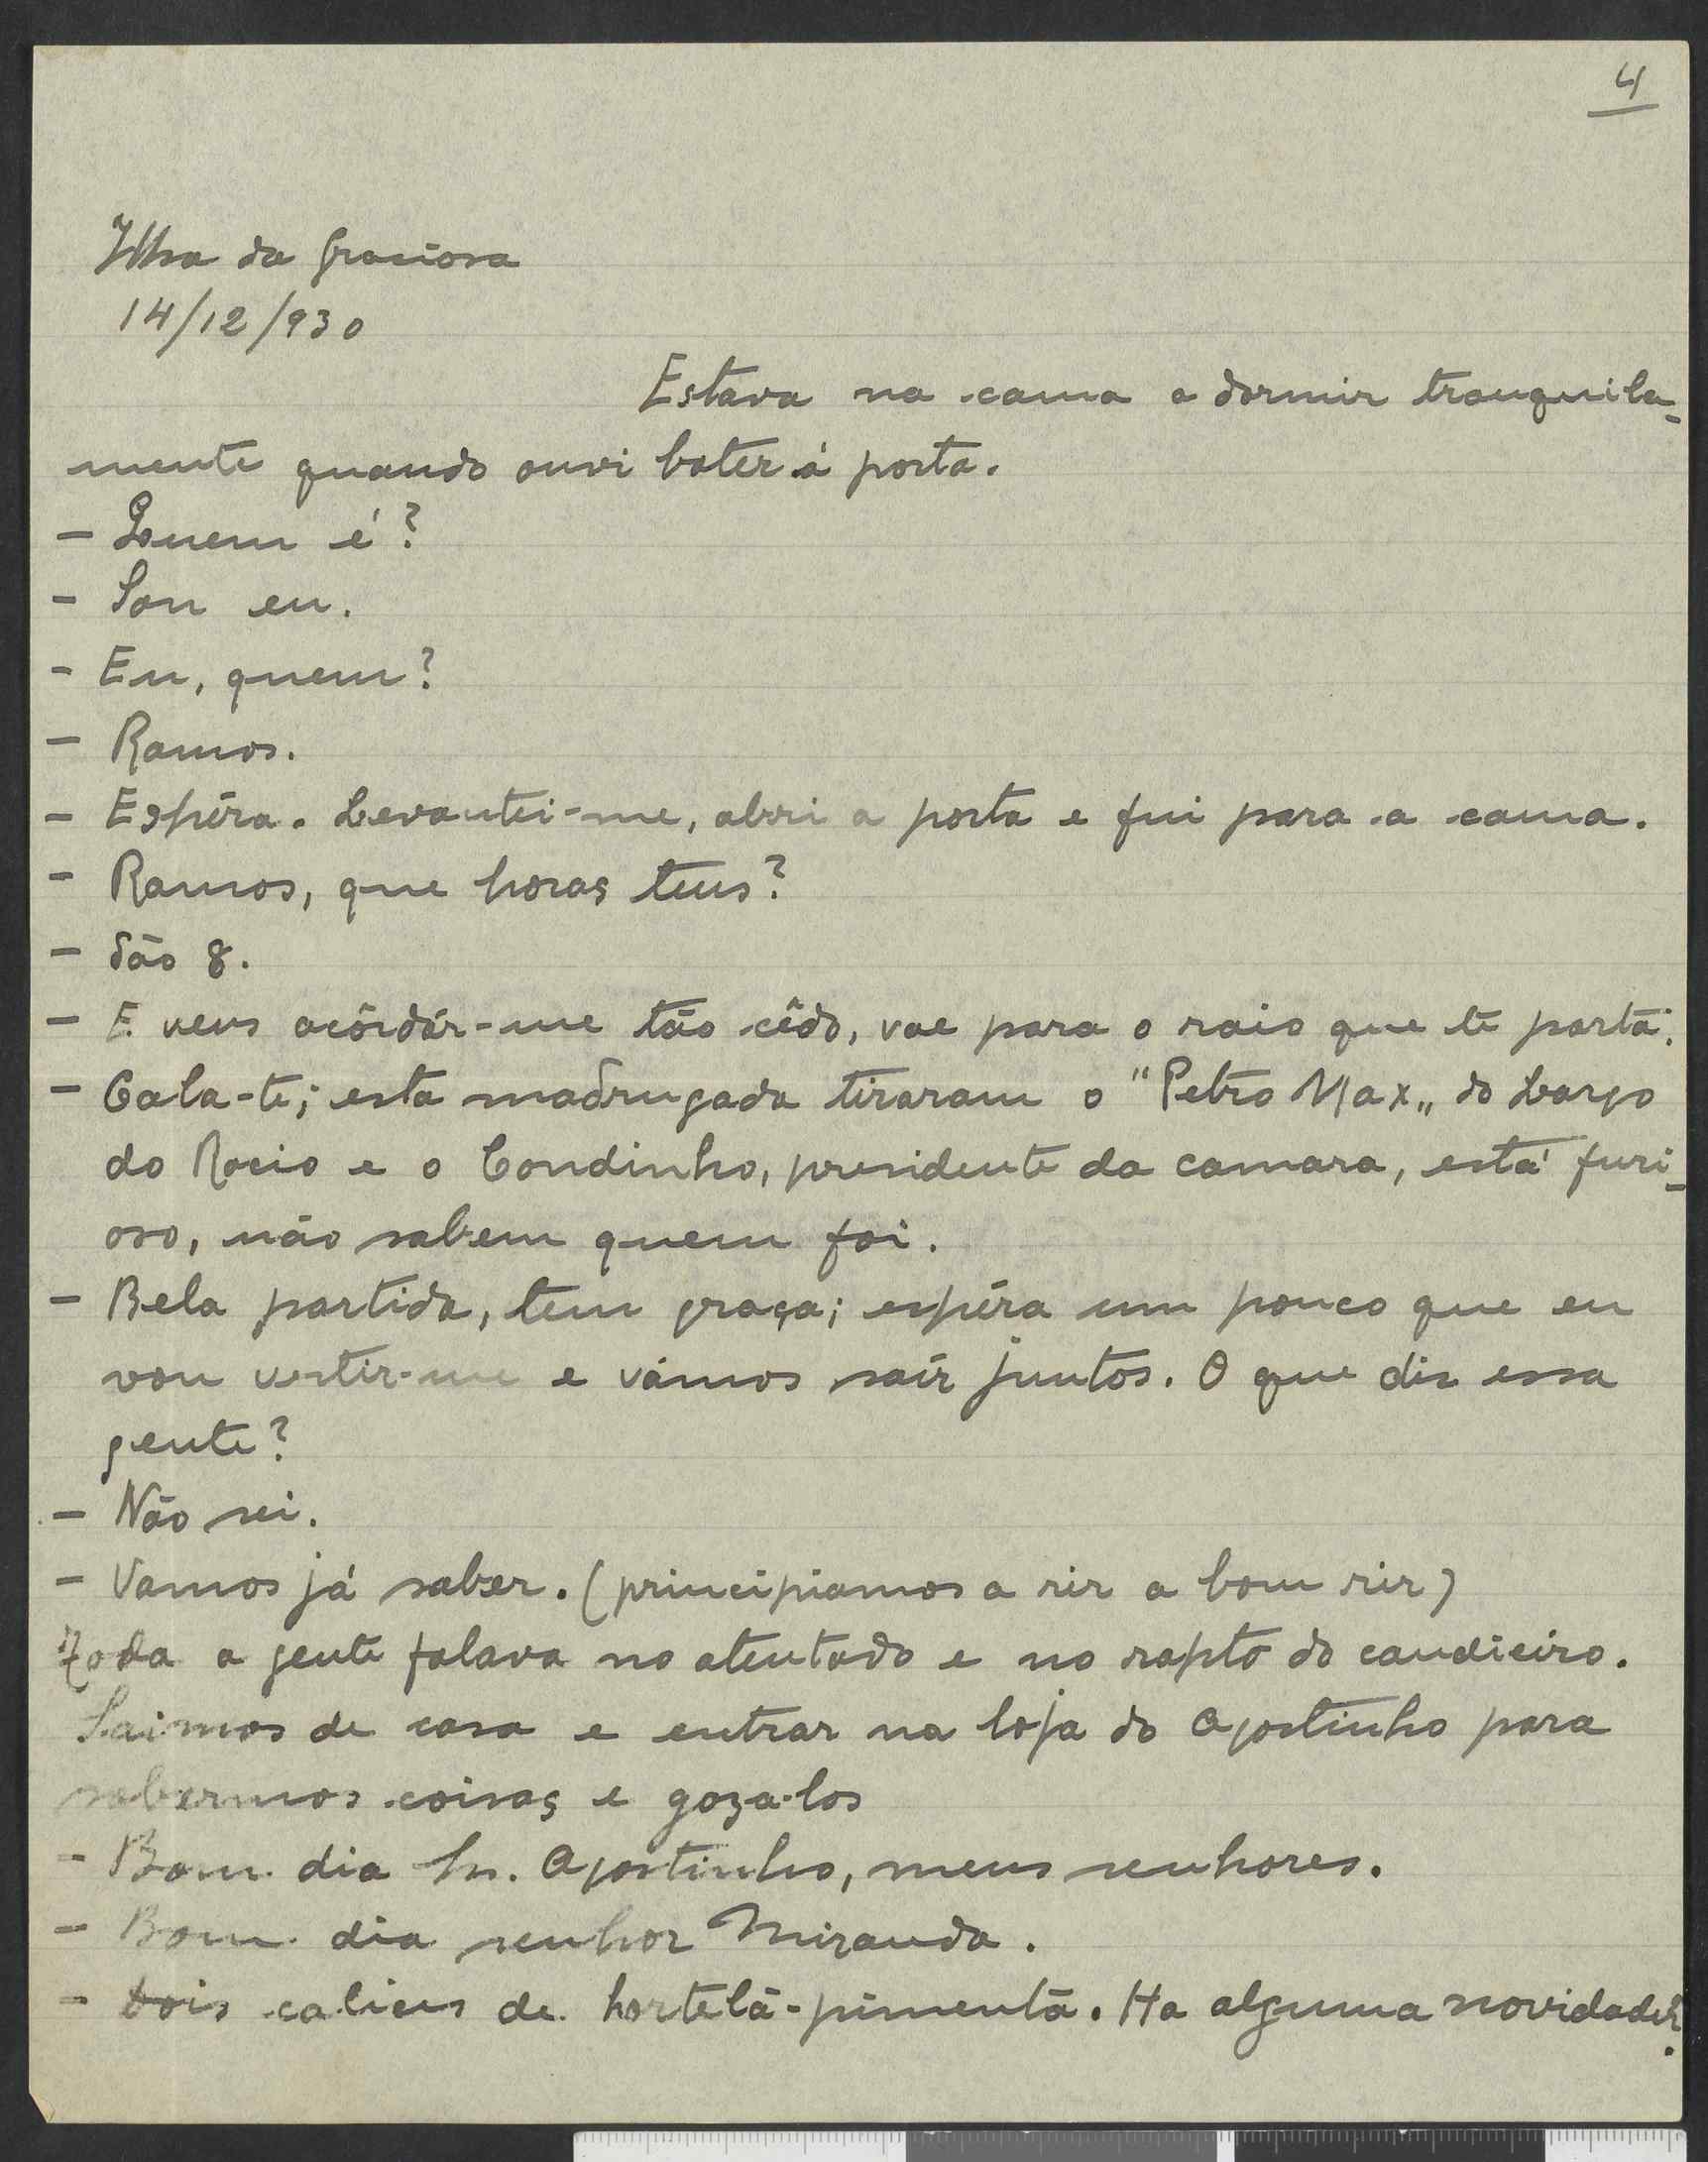 4
Ilha da Graciosa
14/12/930
Estava na cama a dormir tranquila-
mente quando ouvi bater á porta.
- Quem é?
- Sou eu.
- Eu, quem?
- Ramos.
- Espéra. Levantei-me, abri a porta e fui para a cama.
- Ramos, que horas tens?
- São 8.
- E vens acôrdár-me tão cêdo, vae para o raio que te parta.
- Cala-te; esta madrugada tiraram o "Petro Max„ do Largo
do Rocio e o Condinho, presidente da camara, está furi-
oso, não sabem quem foi.
- Bela partida, tem graça; espéra um pouco que eu
vou vestir-me e vámos saír juntos. O que diz essa
gente?
- Não sei.
- Vamos já saber. (principiamos a rir a bom rir)
Toda a gente falava no atentado e no rapto do candieiro.
Saimos de casa e entrar na loja do Agostinho para
sabermos coisas e goza-los
- Bom dia Sr. Agostinho, meus senhores.
- Bom dia senhor Miranda.
- Dois calices de hortelã-pimentã. Ha alguma novidade?